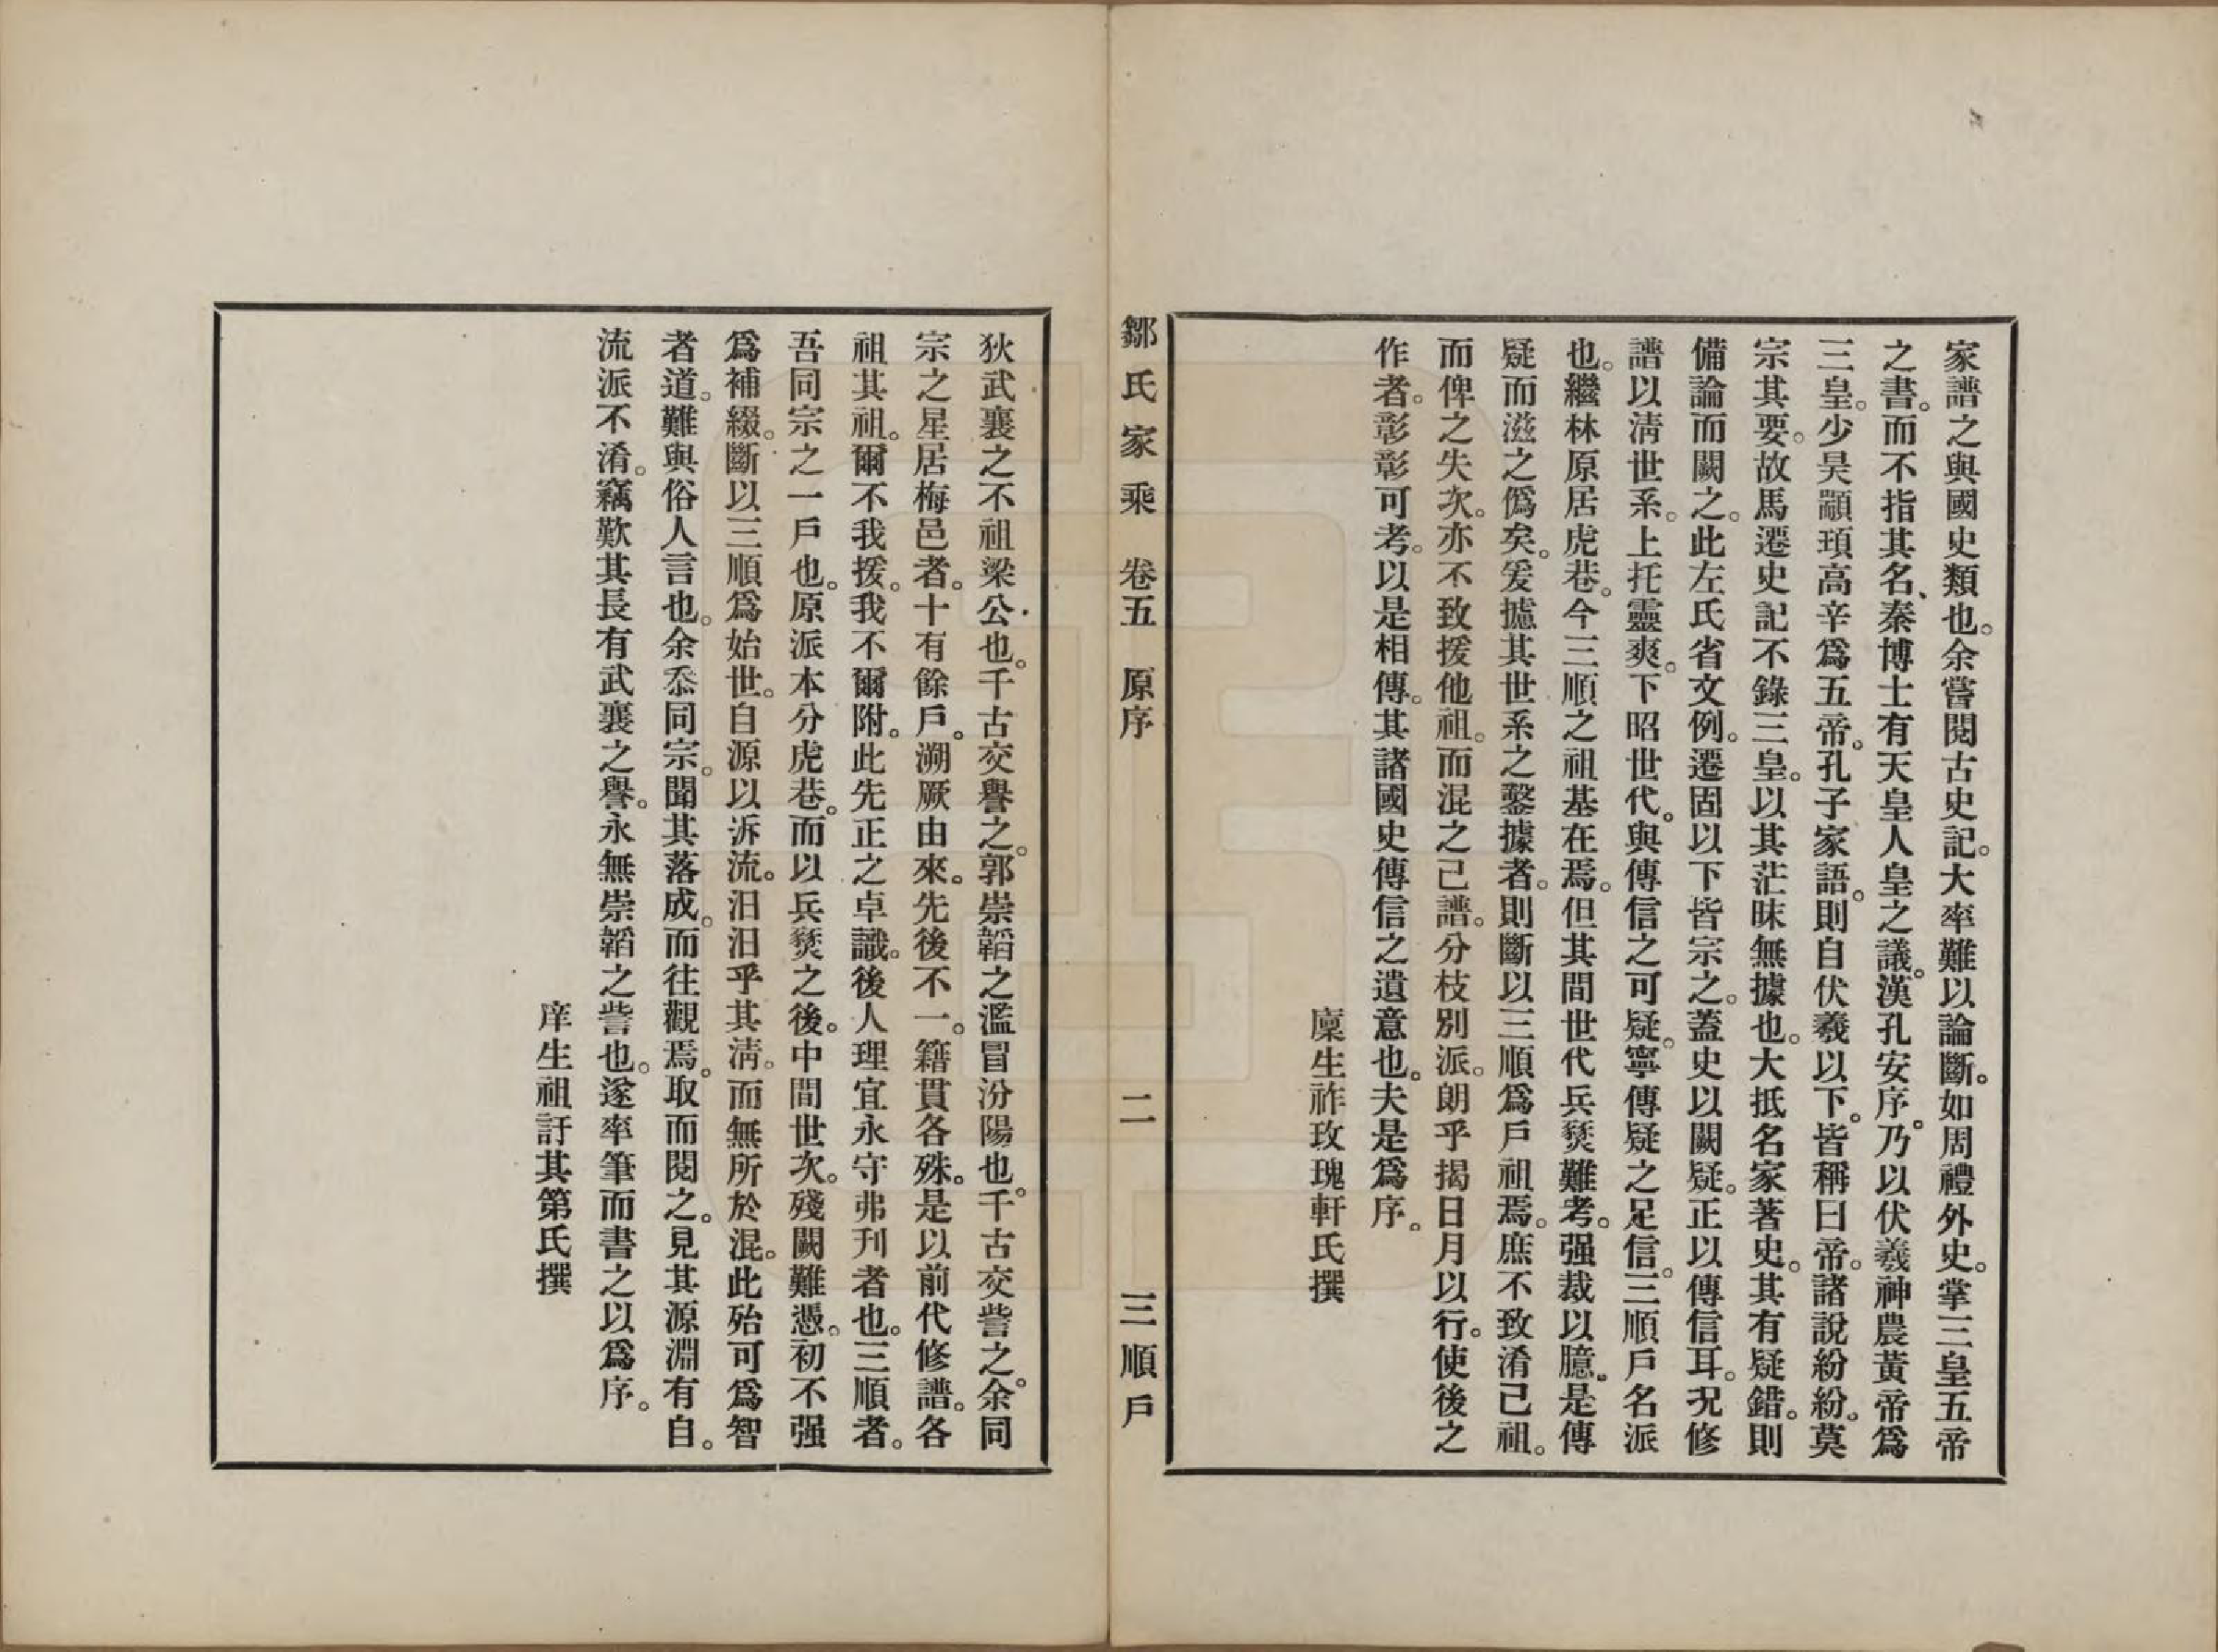 家譜之與國史類也。余嘗閱古史記。大率難以論斷。如周禮外史。掌三皇五帝
之書。而不指其名、秦博士有天皇人皇之議。漢孔安序。乃以伏羲神農黃帝爲
三皇。少昊顓頊高辛爲五帝。孔子家語。則自伏羲以下。皆稱曰帝。諸說紛紛。莫
宗其要。故馬遷史記不錄三皇。以其茫昧無據也。大抵名家著史。其有疑錯。則
備論而闕之。此左氏省文例。遷固以下皆宗之。蓋史以闕疑。正以傳信耳。況修
譜以淸世系。上托靈爽。下昭世代。與傳信之可疑。寧傳疑之足信。三順戶名派
也。繼林原居虎巷。今三順之祖基在焉。但其間世代兵燹難考。强裁以臆。是傳
疑而滋之僞矣。爰摅其世系之鑿據者。則斷以三順爲戶祖焉。庶不致淆己祖。
而俾之失次。亦不致援他祖。而混之己譜。分枝別派。朗乎揭日月以行。使後之
作者。彰彰可考。以是相傳。其諸國史傳信之遺意也。夫是爲序。
廩生祚玫瑰軒氏撰
鄒氏家乘 卷五 原序 二 三順戶
狄武襄之不祖梁公也。千古交譽之。郭崇韜之濫冒汾陽也。千古交訾之。余同
宗之星居梅邑者。十有餘戶。溯厥由來。先後不一。籍貫各殊。是以前代修譜。各
祖其祖。爾不我援。我不爾附。此先正之卓識。後人理宜永守弗刋者也。三順者。
吾同宗之一戶也。原派本分虎巷。而以兵燹之後。中間世次。殘闕難憑。初不强
爲補綴。斷以三順爲始世。自源以泝流。汨汨乎其淸。而無所於混。此殆可爲智
者道。難與俗人言也。余忝同宗。聞其落成。而往觀焉。取而閱之。見其源淵有自。
流派不淆。竊歎其長有武襄之譽。永無崇韜之訾也。遂率筆而書之以爲序。
庠生祖訏其第氏撰